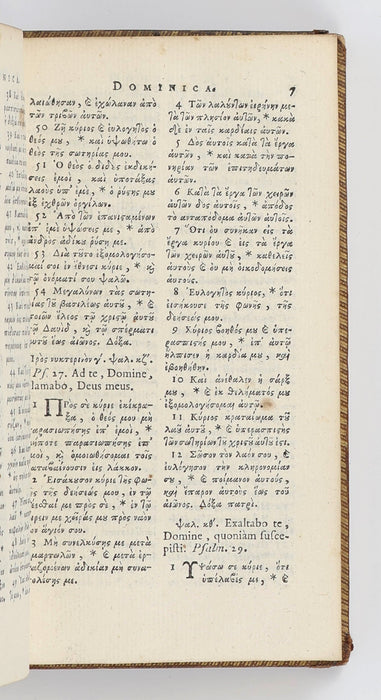 DOMINICA. 7
λαιώθησαν, & ἐχώλαναν ἀπὸ
τῶν τρίβων αὐτῶν.
50 Ζῇ κύριος & εὐλογητὸς ὁ
θεός μου, * καὶ ὑψωθήτω ὁ
θεὸς τῆς σωτηρίας μου.
51 Ὁ θεὸς ὁ διδὺς ἐκδικήσεις
ἐμοί, καὶ ὑποτάξας
λαοὺς ὑπ' ἐμὲ, * ὁ ῥύστης μου
ἐξ ἐχθρῶν ὀργίλων.
52 Ἀπὸ τῶν ἐπανισταμένων
ἐπ' ἐμὲ ὑψώσεις με, * ἀπὸ
ἀνδρὸς ἀδίκου ῥῦσαί με.
53 Διὰ τοῦτο ἐξομολογήσομαί
σοι ἐν ἔθνεσι κύριε, * κ̀
τῷ ὀνόματί σου ψαλῶ.
54 Μεγαλύνων τὰς σωτηρίας
τοῦ βασιλέως αὐτοῦ, * &
ποιῶν ἔλεος τῷ χριστῷ αὐτοῦ
τῷ Δαυὶδ, κ̀ τῷ σπέρματι
αὐτοῦ ἕως αἰῶνος. Δόξα.
Ps. 27. Ad te, Domine,
clamabo, Deus meus.
1 Πρὸς σὲ κύριε ἐκέκραξα,
ὁ θεός μου μὴ
παρασιωπήσῃς ἐπ' ἐμοί, *
μήποτε παρασιωπήσῃς ἐπ'
ἐμοὶ, κ̀ ὁμοιωθήσομαι τοῖς
καταβαίνουσιν εἰς λάκκον.
2 Εἰσάκουσον κύριε τῆς φωνῆς
τῆς δεήσεώς μου, ἐν τῷ
δέεσθαί με πρὸς σὲ, * ἐν τῷ
αἴρειν με χεῖράς μου πρὸς ναὸν
ἅγιόν σου.
3 Μὴ συνελκύσῃς με μετὰ
ἁμαρτωλῶν, * & μετὰ ἐργαζομένων
ἀδικίαν μὴ συναπολέσῃς
με.
4 Τῶν λαλούντων εἰρήνην μετὰ
τῶν πλησίον αὐτῶν, * κακὰ
δὲ ἐν ταῖς καρδίαις αὐτῶν.
5 Δὸς αὐτοῖς κατὰ τὰ ἔργα
αὐτῶν, * καὶ κατὰ τὴν πονηρίαν
τῶν ἐπιτηδευμάτων
αὐτῶν.
6 Κατὰ τὰ ἔργα τῶν χειρῶν
αὐτῶν δὸς αὐτοῖς, * ἀπόδος
τὸ ἀνταπόδομα αὐτῶν αὐτοῖς.
7 Ὅτι οὐ συνῆκαν εἰς τὰ
ἔργα κυρίου & εἰς τὰ ἔργα
τῶν χειρῶν αὐτοῦ, * καθελεῖς
αὐτοὺς & οὐ μὴ οἰκοδομήσεις
αὐτούς.
8 Εὐλογητὸς κύριος, * ὅτι
εἰσήκουσε τῆς φωνῆς, τῆς
δεήσεώς μου.
9 Κύριος βοηθός μου & ὑπερασπιστής
μου, * ἐπ' αὐτῷ
ἤλπισεν ἡ καρδία μου, καὶ
ἐβοηθήθην.
10 Καὶ ἀνέθαλεν ἡ σάρξ
μου, * & ἐκ θελήματός μου
ἐξομολογήσομαι αὐτῷ.
11 Κύριος κραταίωμα τοῦ
λαοῦ αὐτοῦ, * & ὑπερασπιστὴς
τῶν σωτηρίων τοῦ χριστοῦ αὐτοῦ ἐστι.
12 Σῶσον τὸν λαόν σου, &
εὐλόγησον τὴν κληρονομίαν
σου, * & ποίμανον αὐτοὺς,
καὶ ἔπαρον αὐτοὺς ἕως τοῦ
αἰῶνος. Δόξα πατρί.
ψαλ. κθ'. Exaltabo te,
Domine, quoniam suscepisti.
Psalm. 29.
1 Ὑψώσω σε κύριε, ὅτι
ὑπέλαβές με, * &